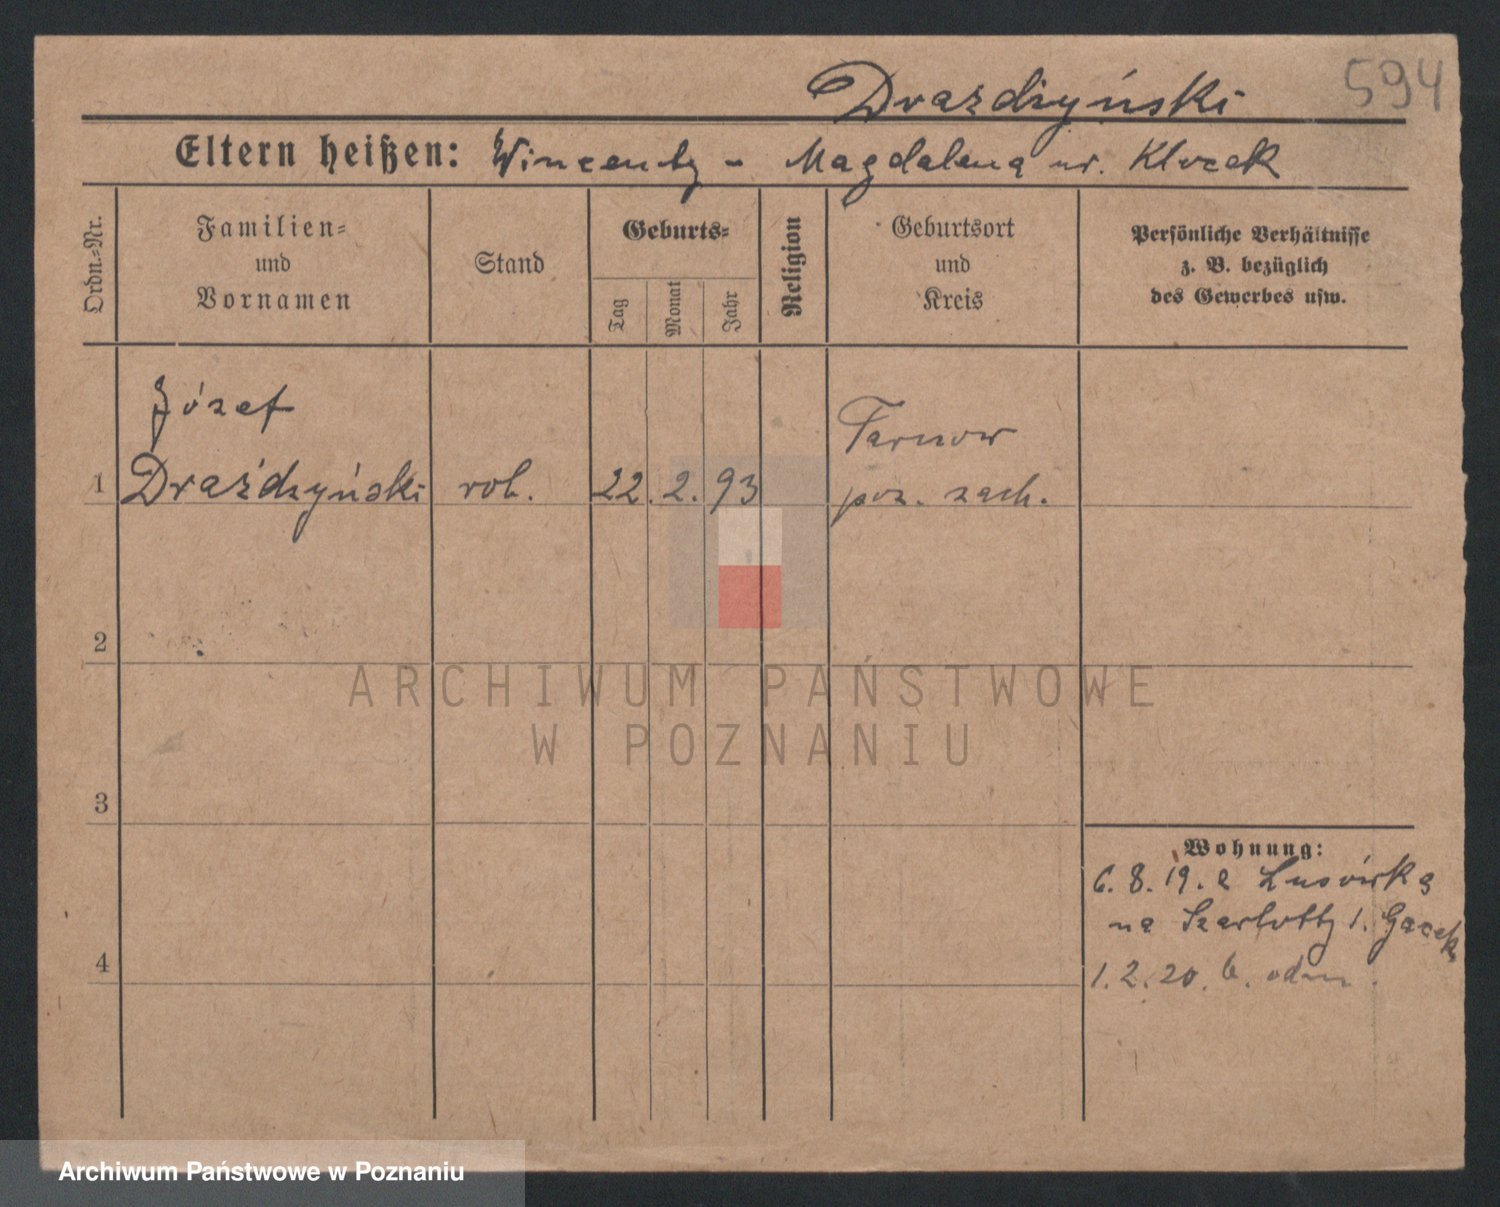 594
Drażdżyński
Eltern heißen: Wincenty - Magdalena ur. Klocek
Ordn.-Nr.
Familien-
und
Vornamen
Stand
Geburts-
Tag
Monat
Jahr
Religion
Geburtsort
und
Kreis
Persönliche Verhältnisse
z. B. bezüglich
des Gewerbes usw.
Józef
1 Drażdżyński rob. 22. 2. 93 Tarnow
poz. zach.
2
ARCHIWUM PAŃSTWOWE
W POZNANIU
3
Wohnung:
6.8.19. z Lusówka
na Szarlotty 1. Gacek
4
1.2.20. odm.
Archiwum Państwowe w Poznaniu